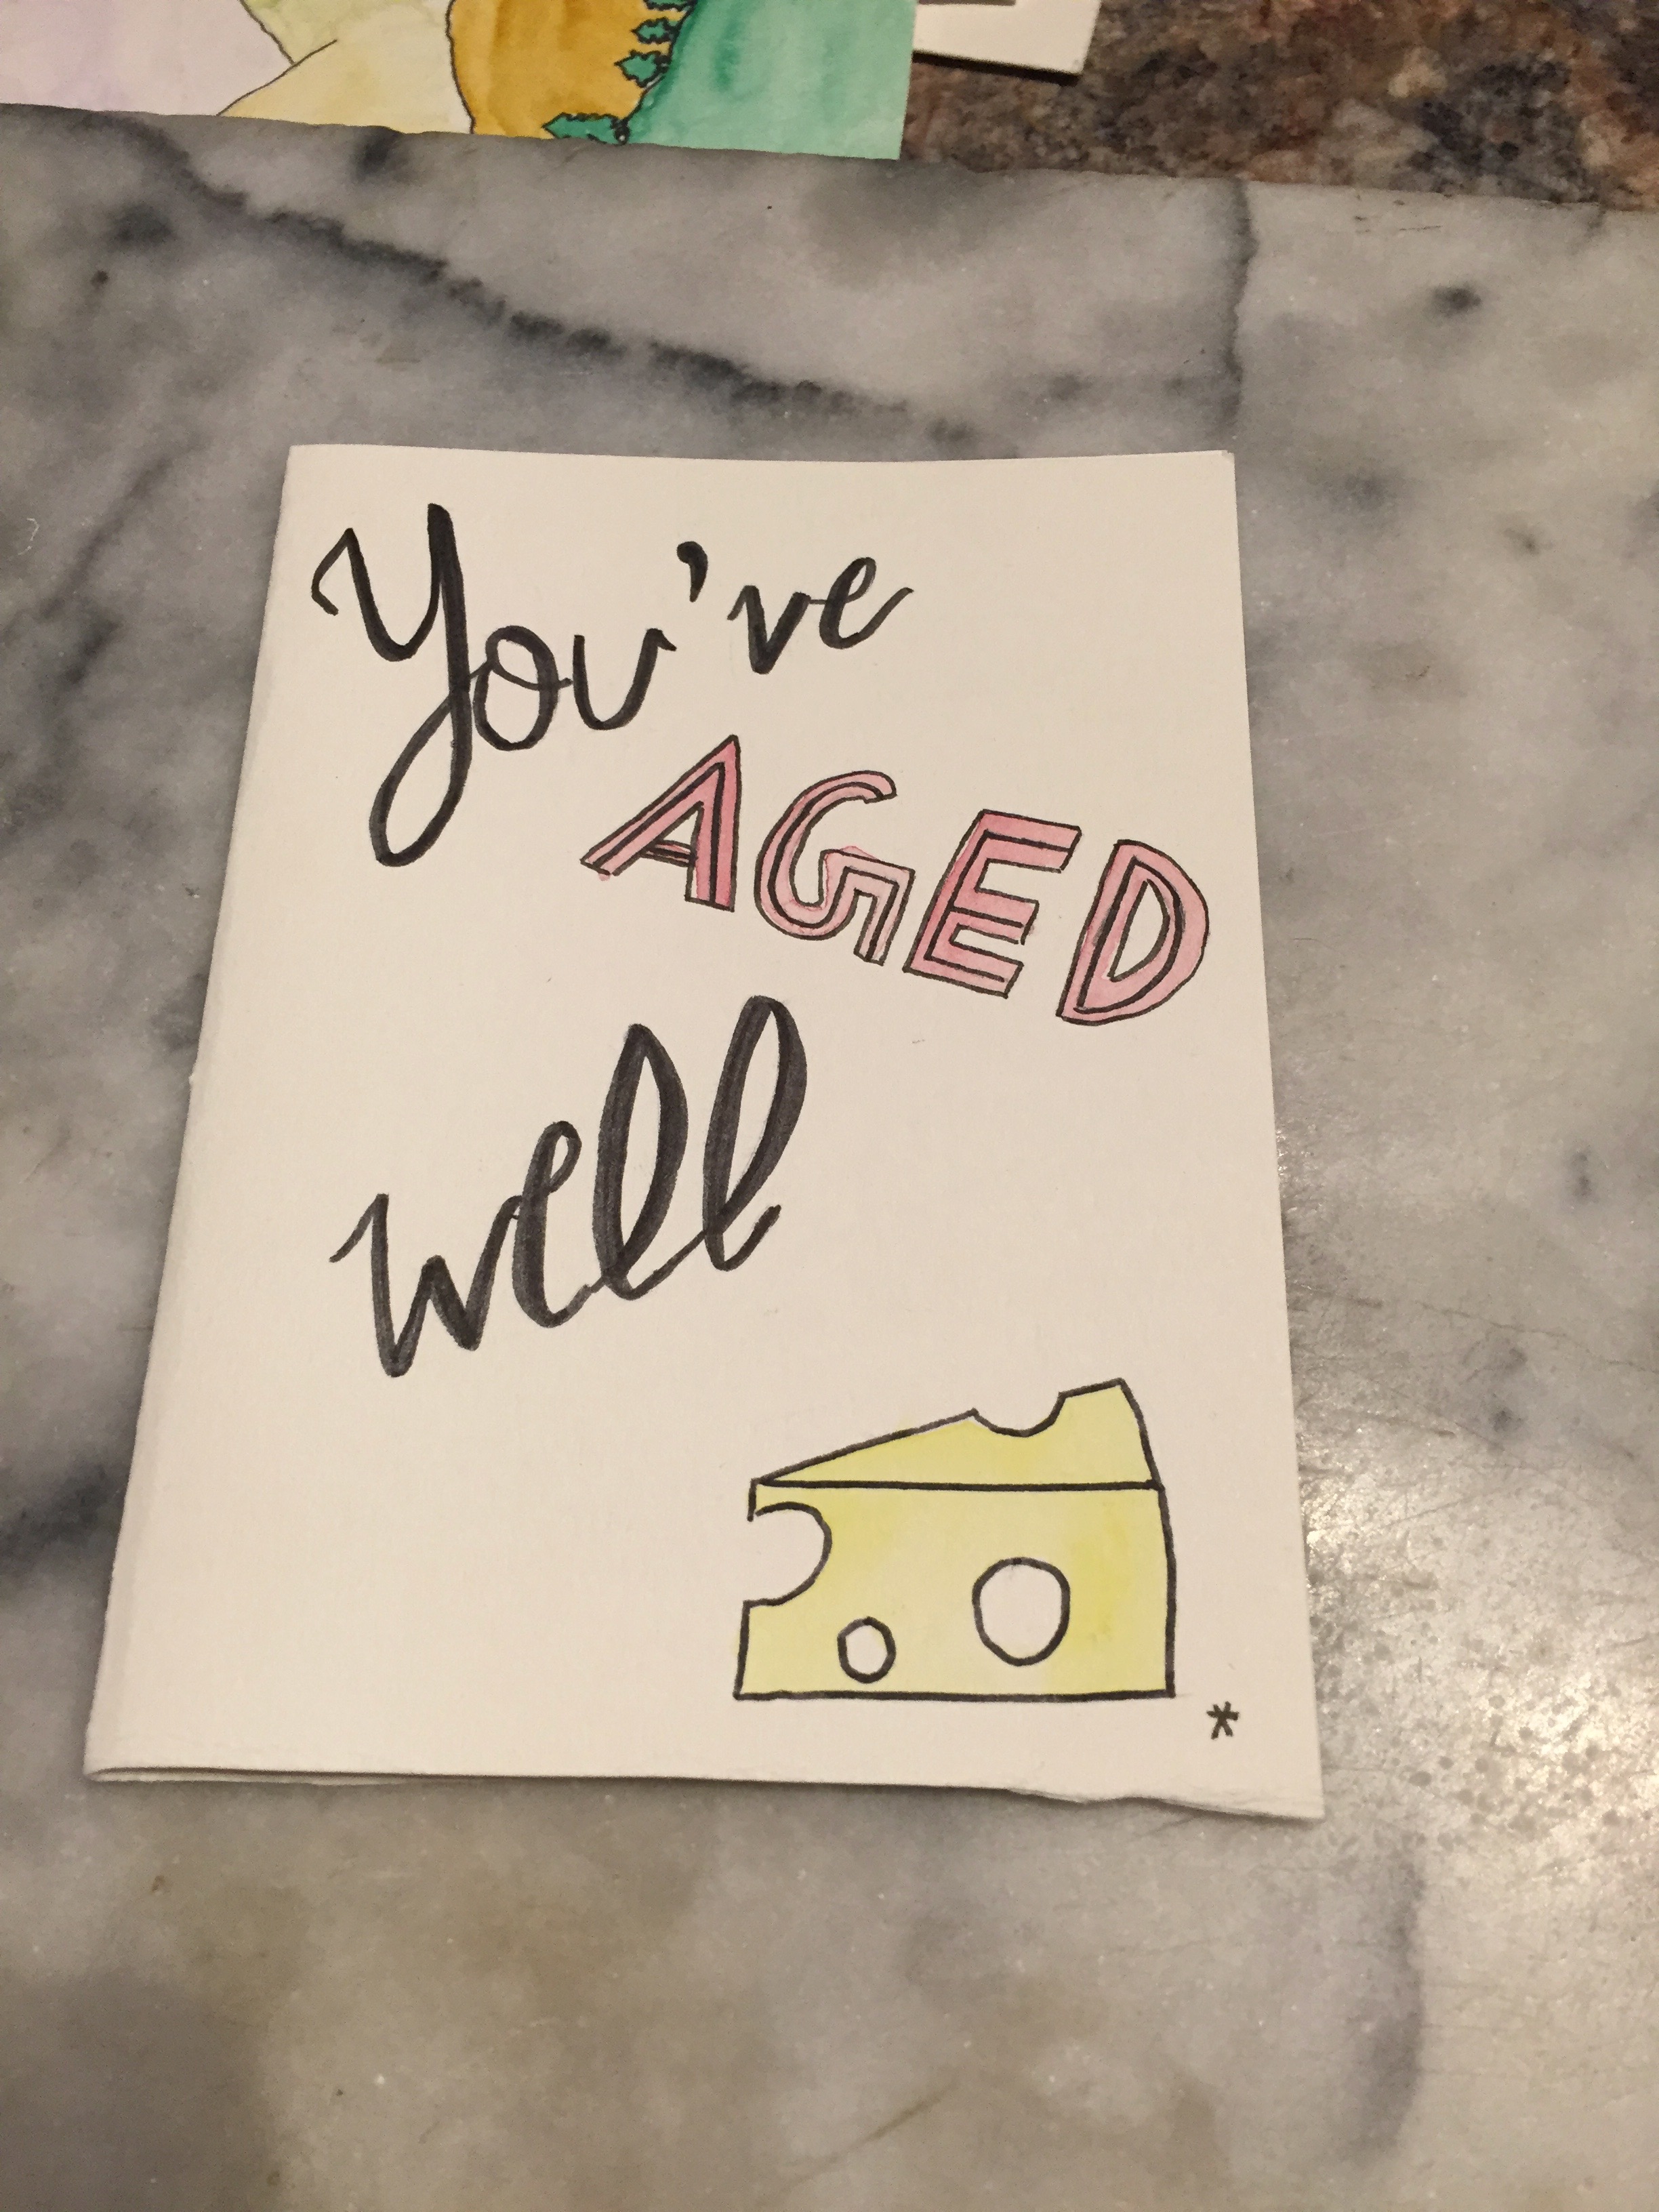 You've
AGED
well
*